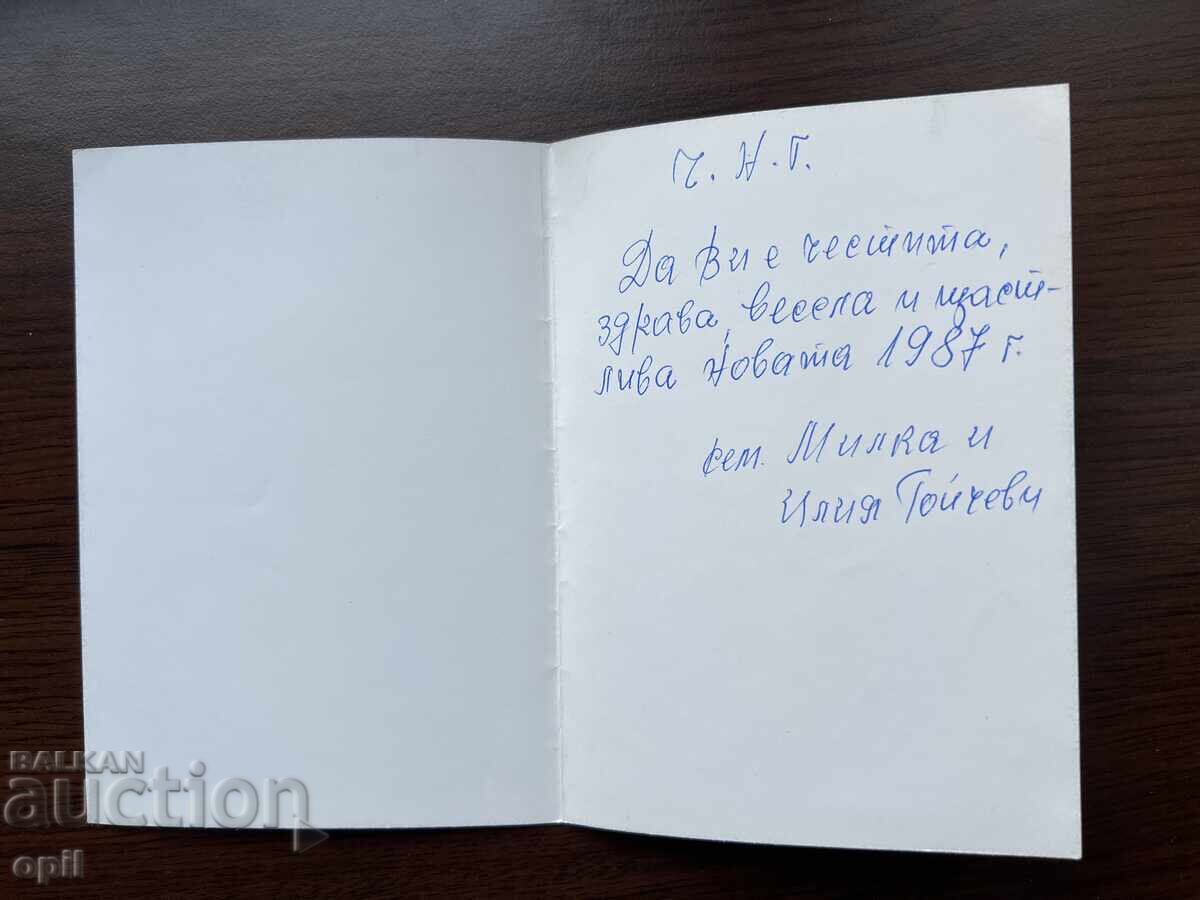 Ч. Н. Г.
Да Ви е честита,
здрава, весела и щаст-
лива Новата 1987 г.
сем. Милка и
Илия Гойчеви
BALKAN
auction
opil